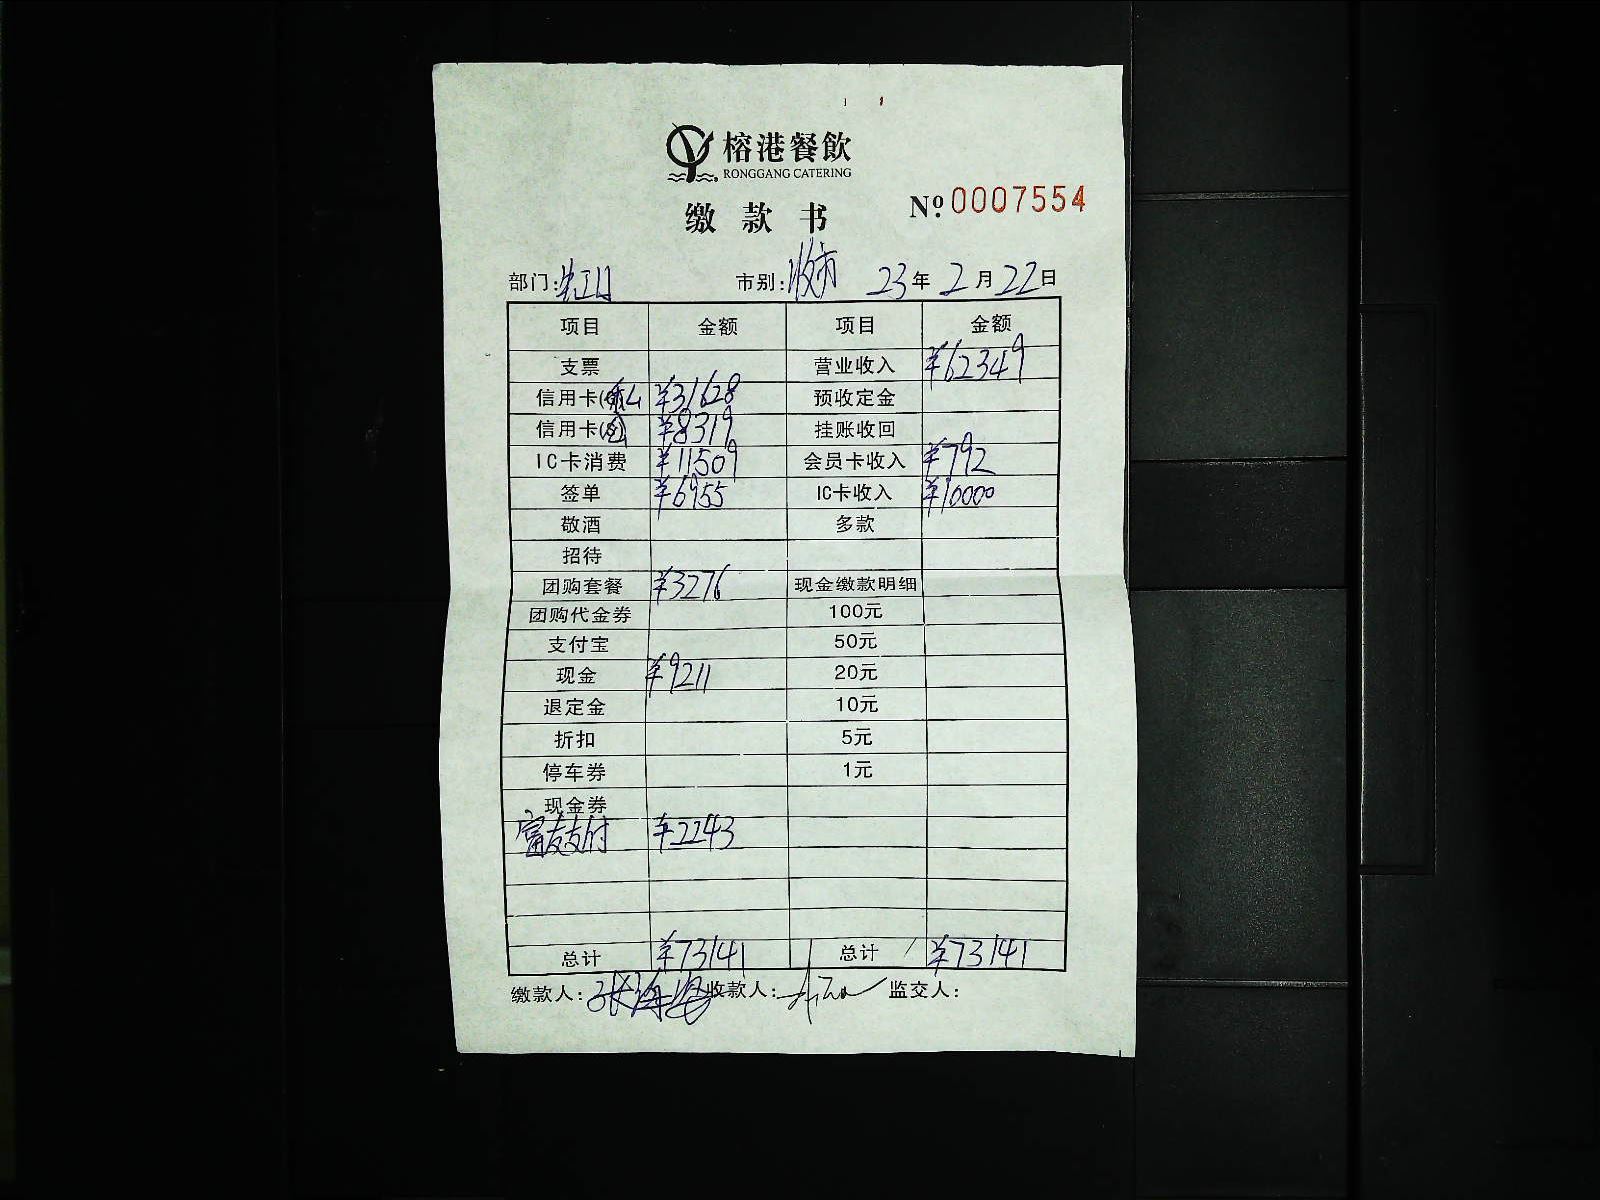 榕港餐飲
RONGGANG CATERING
缴款书 Nº.0007554
部门:虹口 市别:收市 23年2月22日
项目 金额 项目 金额
支票 营业收入 ¥62349
信用卡(私 ¥31628 预收定金
信用卡(公) ¥8319 挂账收回
IC卡消费 ¥11509 会员卡收入 ¥792
签单 ¥6955 IC卡收入 ¥10000
敬酒 多款
招待
团购套餐 ¥3276 现金缴款明细
团购代金券 100元
支付宝 50元
现金 ¥9211 20元
退定金 10元
折扣 5元
停车券 1元
现金券
富友支付 ¥2243
总计 ¥73141 总计 ¥73141
缴款人:张海 收款人: 监交人: